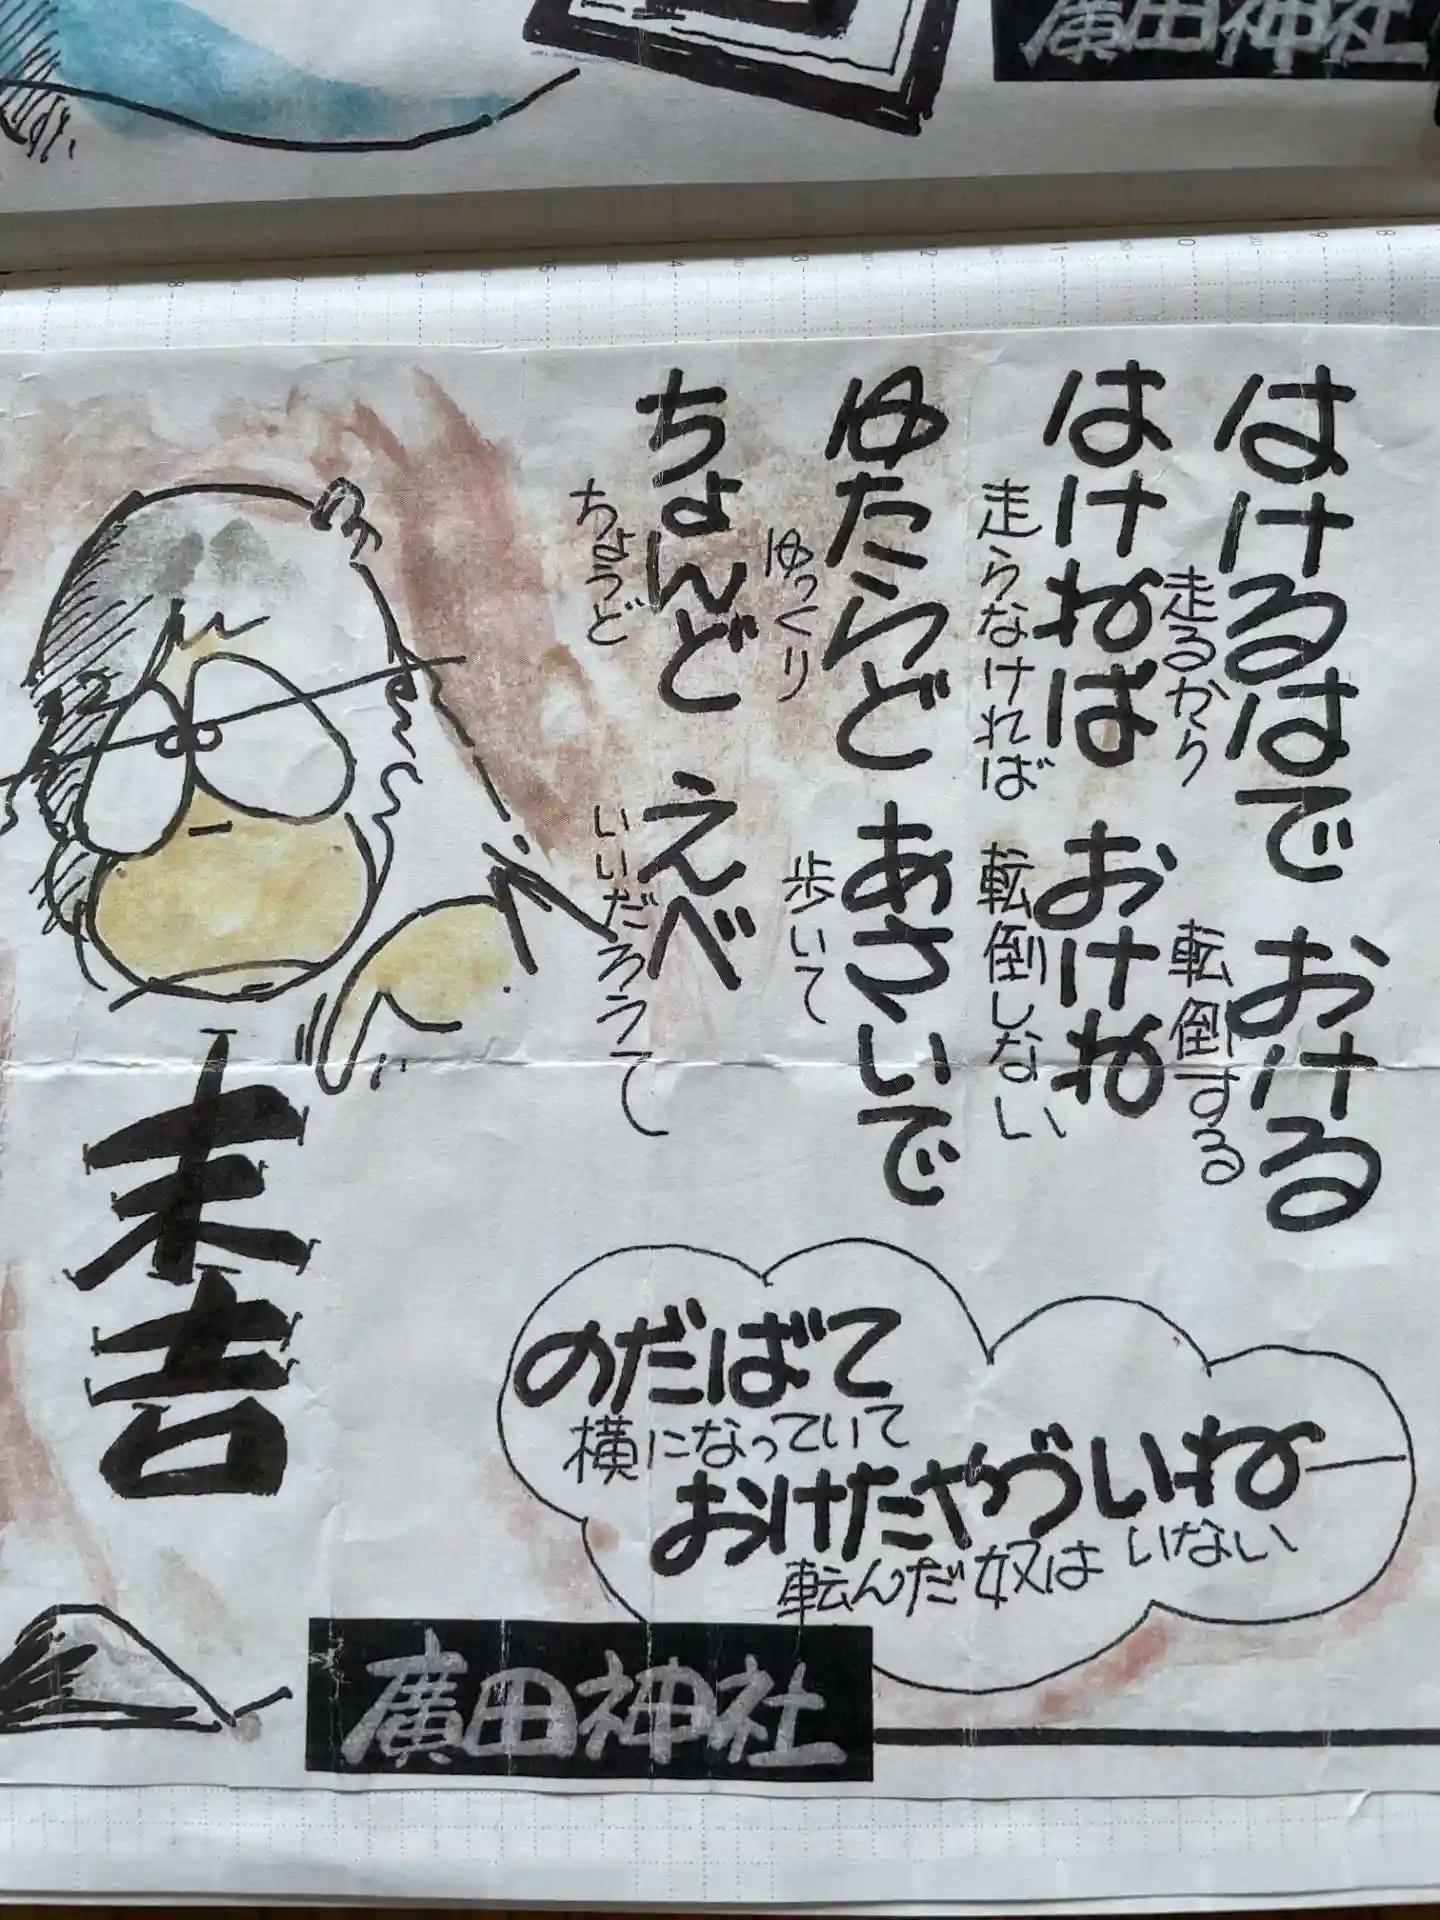 廣田神社
はけるはで おける
走るから 転倒する
はけねば おけね
走らなければ 転倒しない
ゆたらど あさいで
ゆっくり 歩いて
ちょんど えべ
ちょうど いいだろうて
末吉
のだばて
横になっていて
おけたやづいねー
転んだ奴は いない
廣田神社